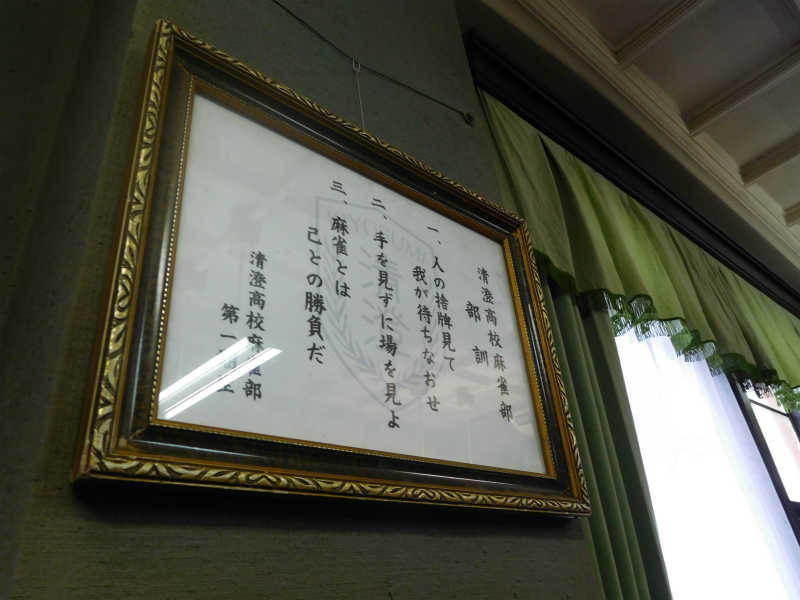 清澄高校麻雀部
部訓
一、人の捨牌見て
我が待ちなおせ
二、手を見ずに場を見よ
三、麻雀とは
己との勝負だ
清澄高校麻雀部
第一
KIYOSUMI
清澄